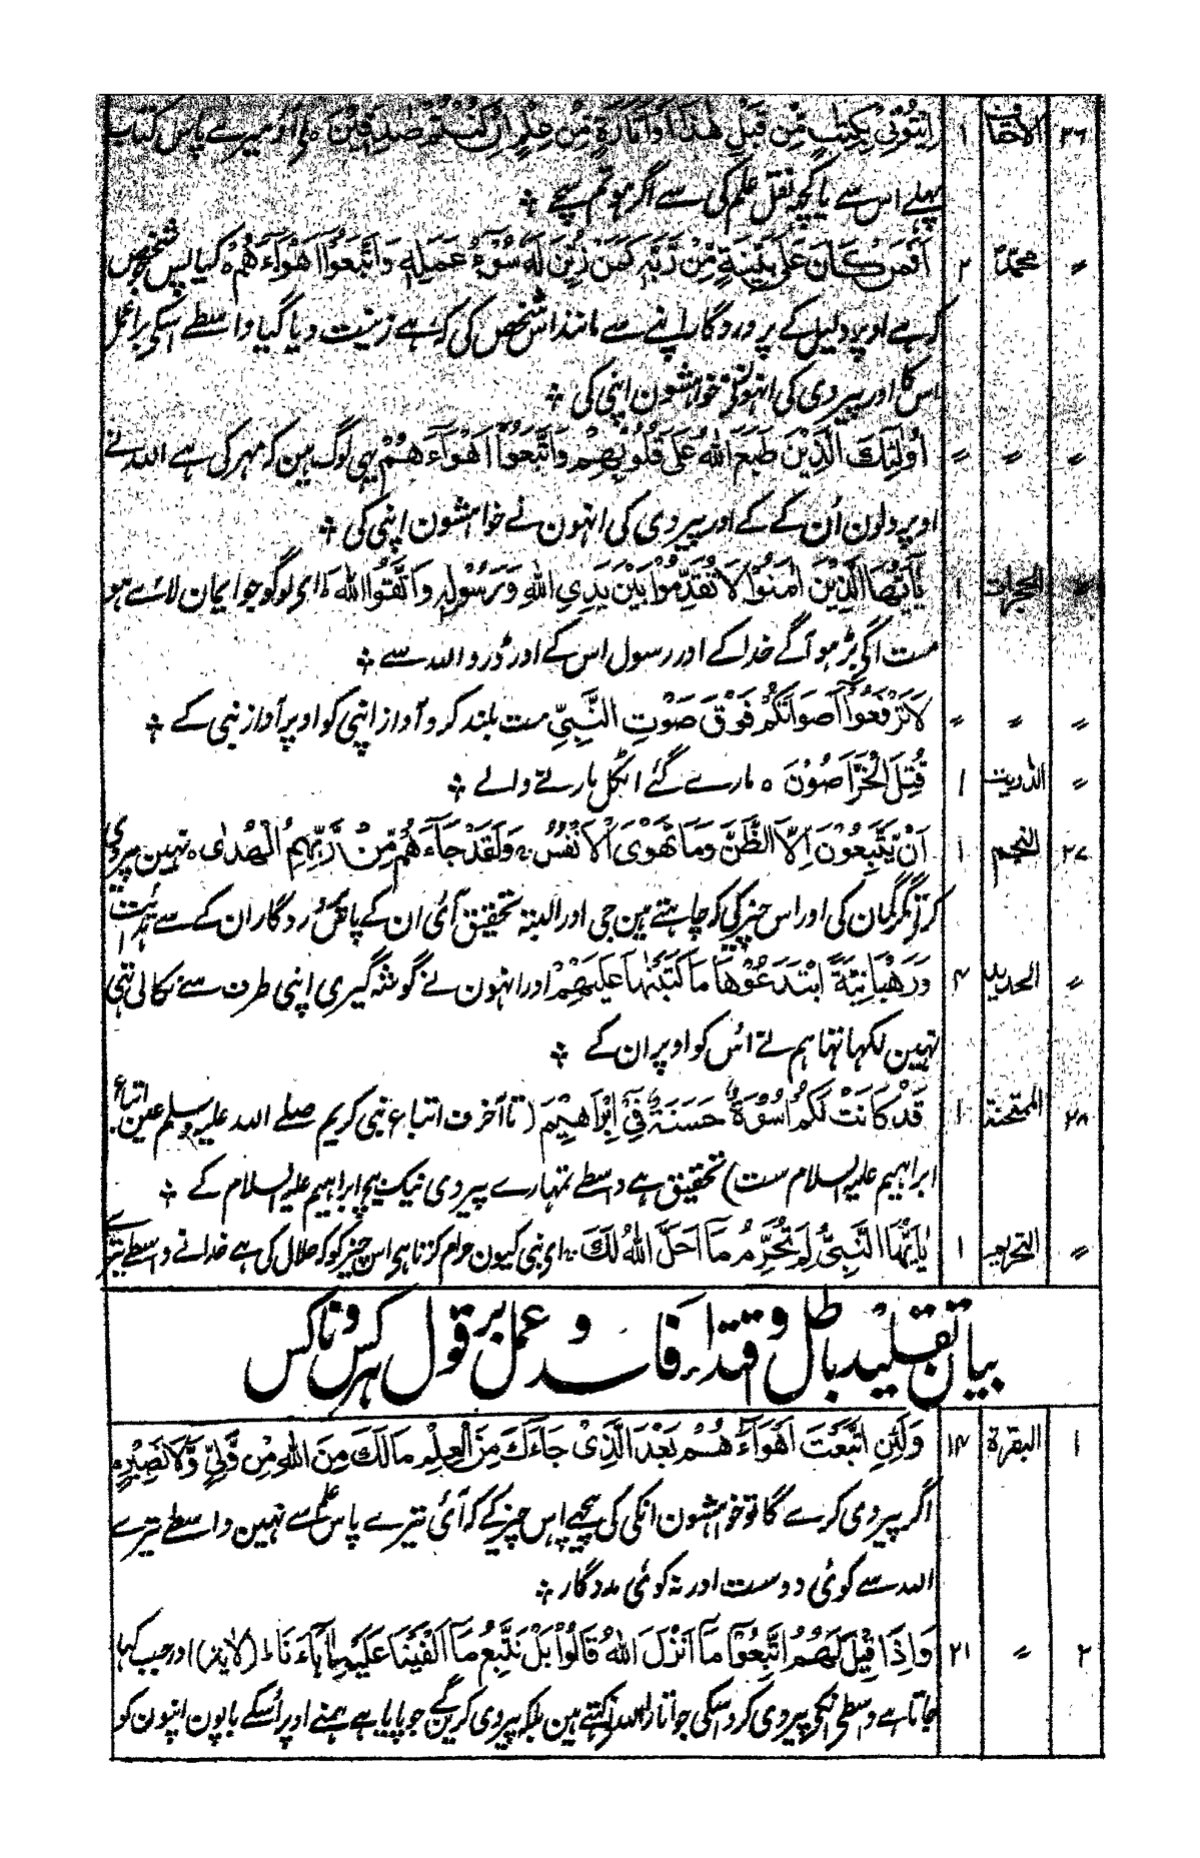 ۲۶ الاحقاف ۱ اِیْتُوْنِیْ بِکِتٰبٍ مِّنْ قَبْلِ هٰذَا اَوْ اَثَارَةٍ مِّنْ عِلْمٍ اِنْ کُنْتُمْ صٰدِقِیْنَ ہ لے آؤ میرے پاس کتاب
پہلے اس سے یا کچھ نقل علم کی سے اگر ہو تم سچے ۔
〃 محمدؐ ۲ اَفَمَنْ کَانَ عَلٰی بَیِّنَةٍ مِّنْ رَّبِّهٖ کَمَنْ زُیِّنَ لَهٗ سُوْٓءُ عَمَلِهٖ وَاتَّبَعُوْٓا اَهْوَآءَهُمْ ہ کیا پس جو شخص
کہ ہے اوپر دلیل کے پروردگار اپنے سے مانند اس شخص کی کہ ہے زینت دیا گیا واسطے اسکی برا عمل
اس کا اور پیروی کی انہونے خواہشون اپنی کی ۔
〃 〃 〃 اُولٰٓئِکَ الَّذِیْنَ طَبَعَ اللهُ عَلٰی قُلُوْبِهِمْ وَاتَّبَعُوْٓا اَهْوَآءَهُمْ یہی لوگ ہین کہ مہر کی ہے اللہ نے
اوپر دلون اُن کے کے اور پیروی کی انہون نے خواہشون اپنی کی ۔
〃 الحجرات ۱ یٰٓاَیُّهَا الَّذِیْنَ اٰمَنُوْا لَا تُقَدِّمُوْا بَیْنَ یَدَیِ اللهِ وَرَسُوْلِهٖ وَاتَّقُوا اللهَ ط ای لوگو جو ایمان لائے ہو
مت آگی بڑہو آگے خدا کے اور رسول اس کے اور ڈرو اللہ سے ۔
〃 〃 〃 لَا تَرْفَعُوْٓا اَصْوَاتَکُمْ فَوْقَ صَوْتِ النَّبِیِّ مت بلند کرو آواز اپنی کو اوپر آواز نبی کے ۔
〃 الذٰریٰت ۱ قُتِلَ الْخَرّٰصُوْنَ ہ مارے گئے اٹکل مارتے والے ۔
۲۷ النجم ۱ اِنْ یَّتَّبِعُوْنَ اِلَّا الظَّنَّ وَمَا تَهْوَی الْاَنْفُسُ ۚ وَلَقَدْ جَآءَهُمْ مِّنْ رَّبِّهِمُ الْهُدٰی ہ نہین پیروی
کرتے مگر گمان کی اور اس چیز کی کہ چاہتے ہین جی اور البتہ تحقیق آئی ان کے پاس پروردگار ان کے سے ہدائت
〃 الحدید ۴ وَرَهْبَانِیَّةً ابْتَدَعُوْهَا مَا کَتَبْنٰهَا عَلَیْهِمْ اور انہون نے گوشہ گیری اپنی طرف سے نکالی تہی
نہین لکہا تہا ہم نے اُس کو اوپر ان کے ۔
۲۸ الممتحنة ۱ قَدْ کَانَتْ لَکُمْ اُسْوَةٌ حَسَنَةٌ فِیْٓ اِبْرَاهِیْمَ (تا آخر ف اتباع نبی کریم صلے اللہ علیہ وسلم عین اتباع
ابراہیم علیہ السلام ست) تحقیق ہے واسطے تمہارے پیروی نیک بیچ ابراہیم علیہ السلام کے ۔
〃 التحریم ۱ یٰٓاَیُّهَا النَّبِیُّ لِمَ تُحَرِّمُ مَآ اَحَلَّ اللهُ لَکَ ۚ ای نبی کیون حرام کرتا ہی اس چیز کو کہ حلال کی ہے خدا نے واسطے تیرے
بیان تقلید باطل و اقتداء فاسد و عمل بر قول ہر کس و ناکس
۱ البقرة ۱۴ وَلَئِنِ اتَّبَعْتَ اَهْوَآءَهُمْ بَعْدَ الَّذِیْ جَآءَکَ مِنَ الْعِلْمِ مَا لَکَ مِنَ اللهِ مِنْ وَّلِیٍّ وَّلَا نَصِیْرٍ ہ
اگر پیروی کرے گا تو خواہشون انکی کی پیچہے اس چیز کے کہ آئی تیرے پاس علم سے نہین واسطے تیرے
اللہ سے کوئی دوست اور نہ کوئی مددگار ۔
۲ 〃 ۲۱ وَاِذَا قِیْلَ لَهُمُ اتَّبِعُوْا مَآ اَنْزَلَ اللهُ قَالُوْا بَلْ نَتَّبِعُ مَآ اَلْفَیْنَا عَلَیْهِ اٰبَآءَنَا ط (الآیة) اور جب کہا
جاتا ہے واسطی انکی پیروی کرو اسکی جو اتارا اللہ نے کہتے ہین بلکہ پیروی کرینگے جو پایا ہے ہمنے اوپر اُسکے باپون اپنون کو